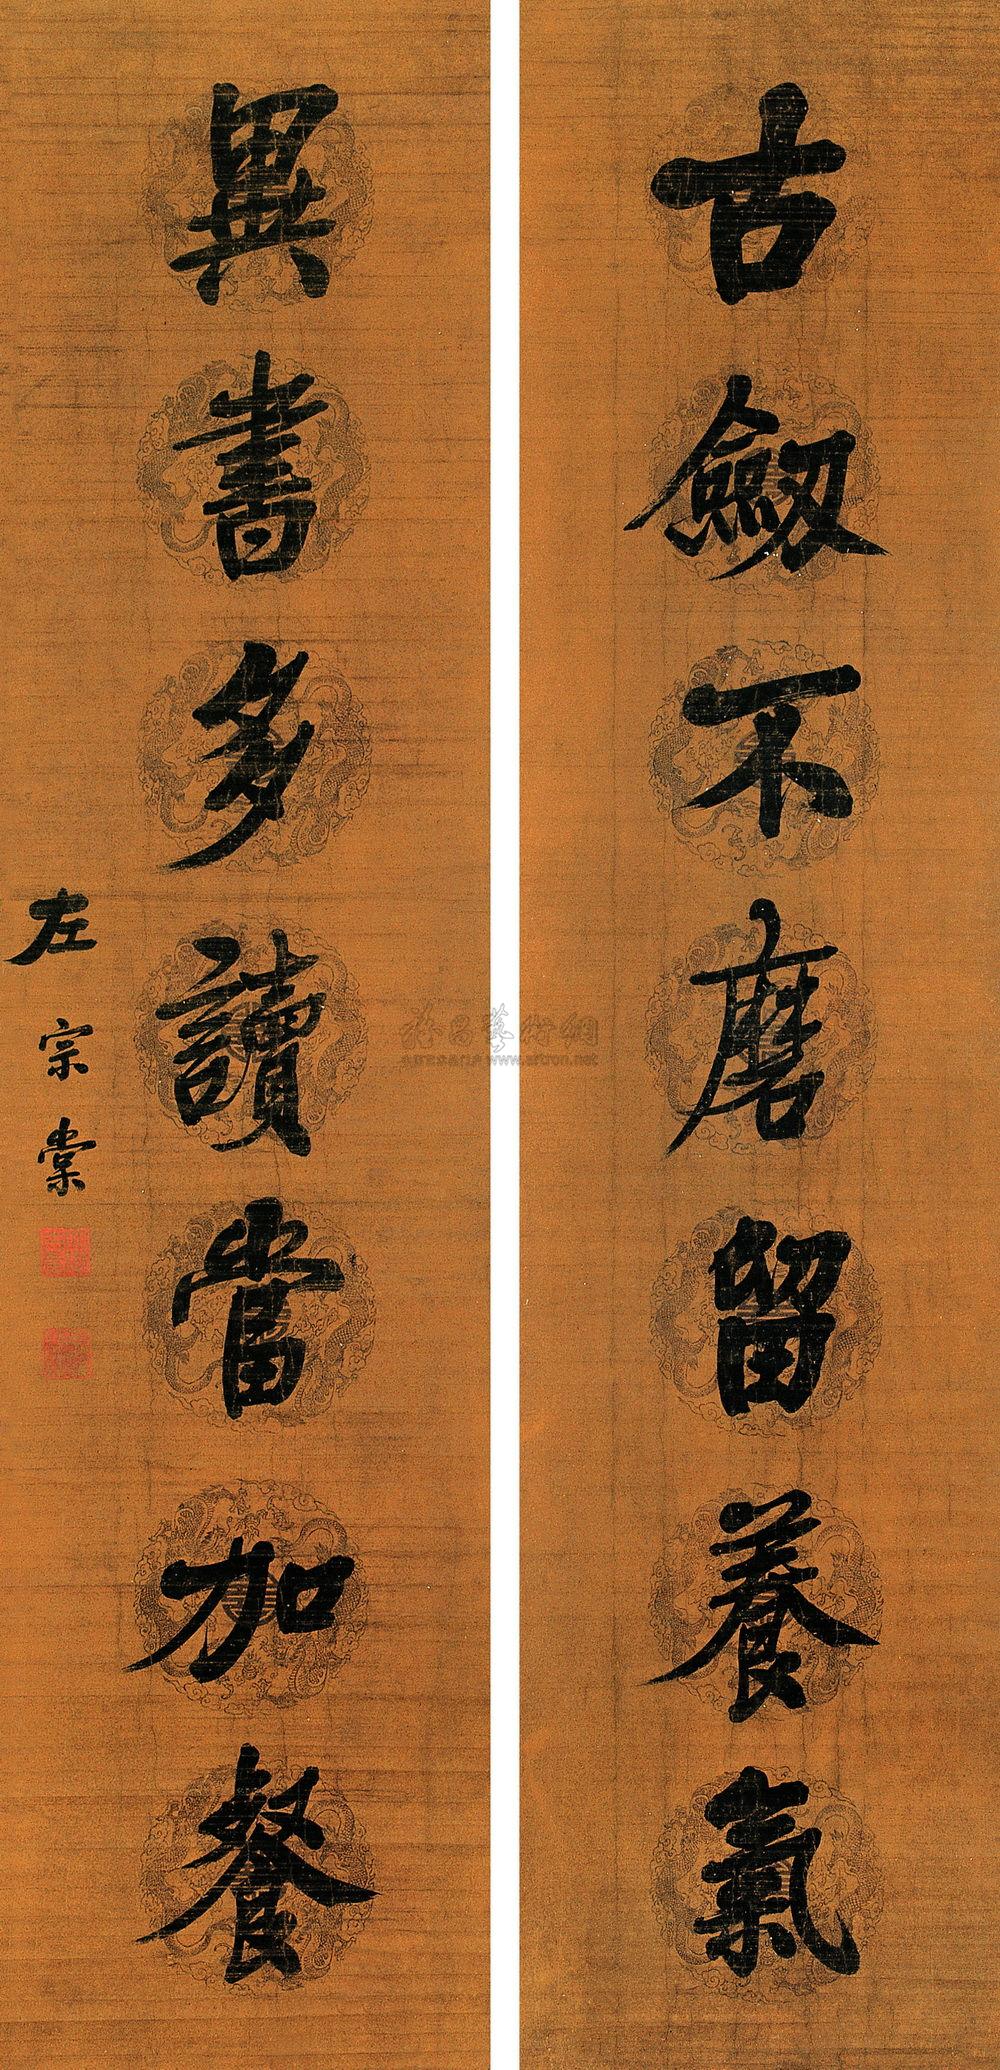 古劔不磨留養氣
異書多讀當加餐
左宗棠
www.artron.net